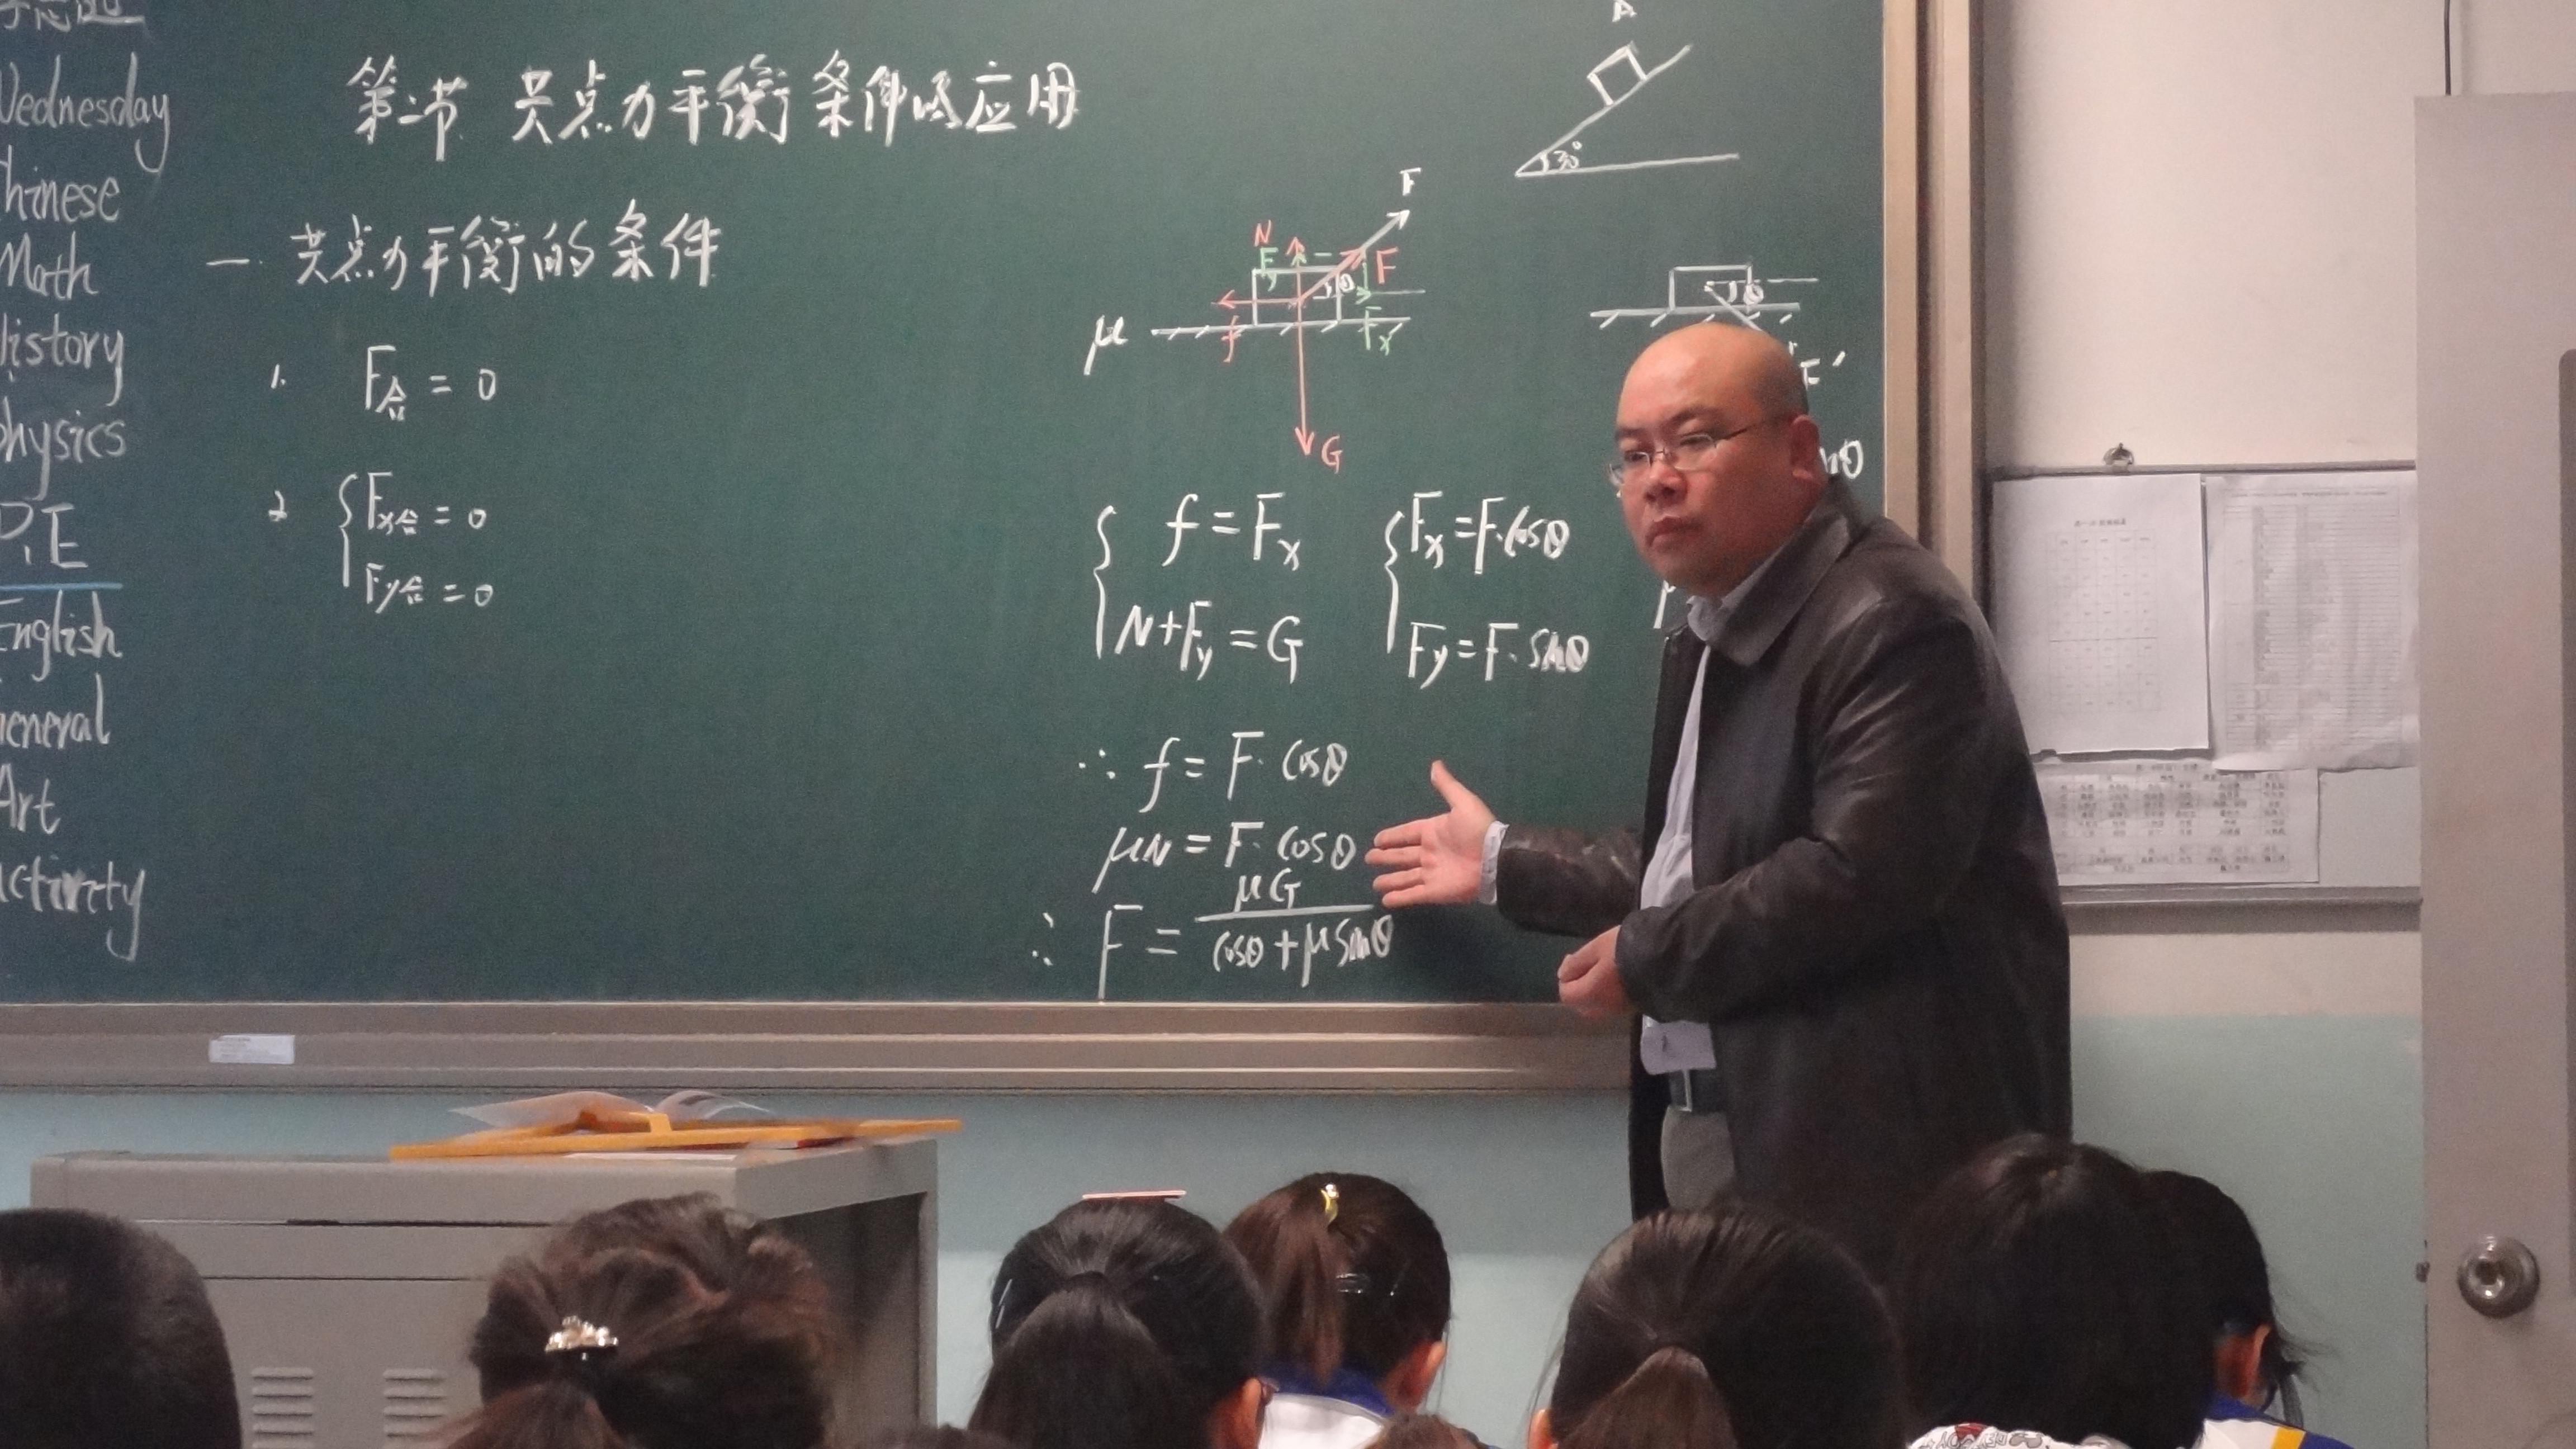 Wednesday
Chinese
Math
History
Physics
P.E
English
General
Art
Activity
第二节 共点力平衡条件的应用
一 共点力平衡的条件
1. F合 = 0
2 { Fx合 = 0
Fy合 = 0
A
30°
F
N
Fy
F
θ
f
Fx
μ
G
θ
F′
f = Fx
N+Fy = G
Fx = F·cosθ
Fy = F·sinθ
∴ f = F·cosθ
μN = F·cosθ
∴ F = μG / (cosθ + μsinθ)